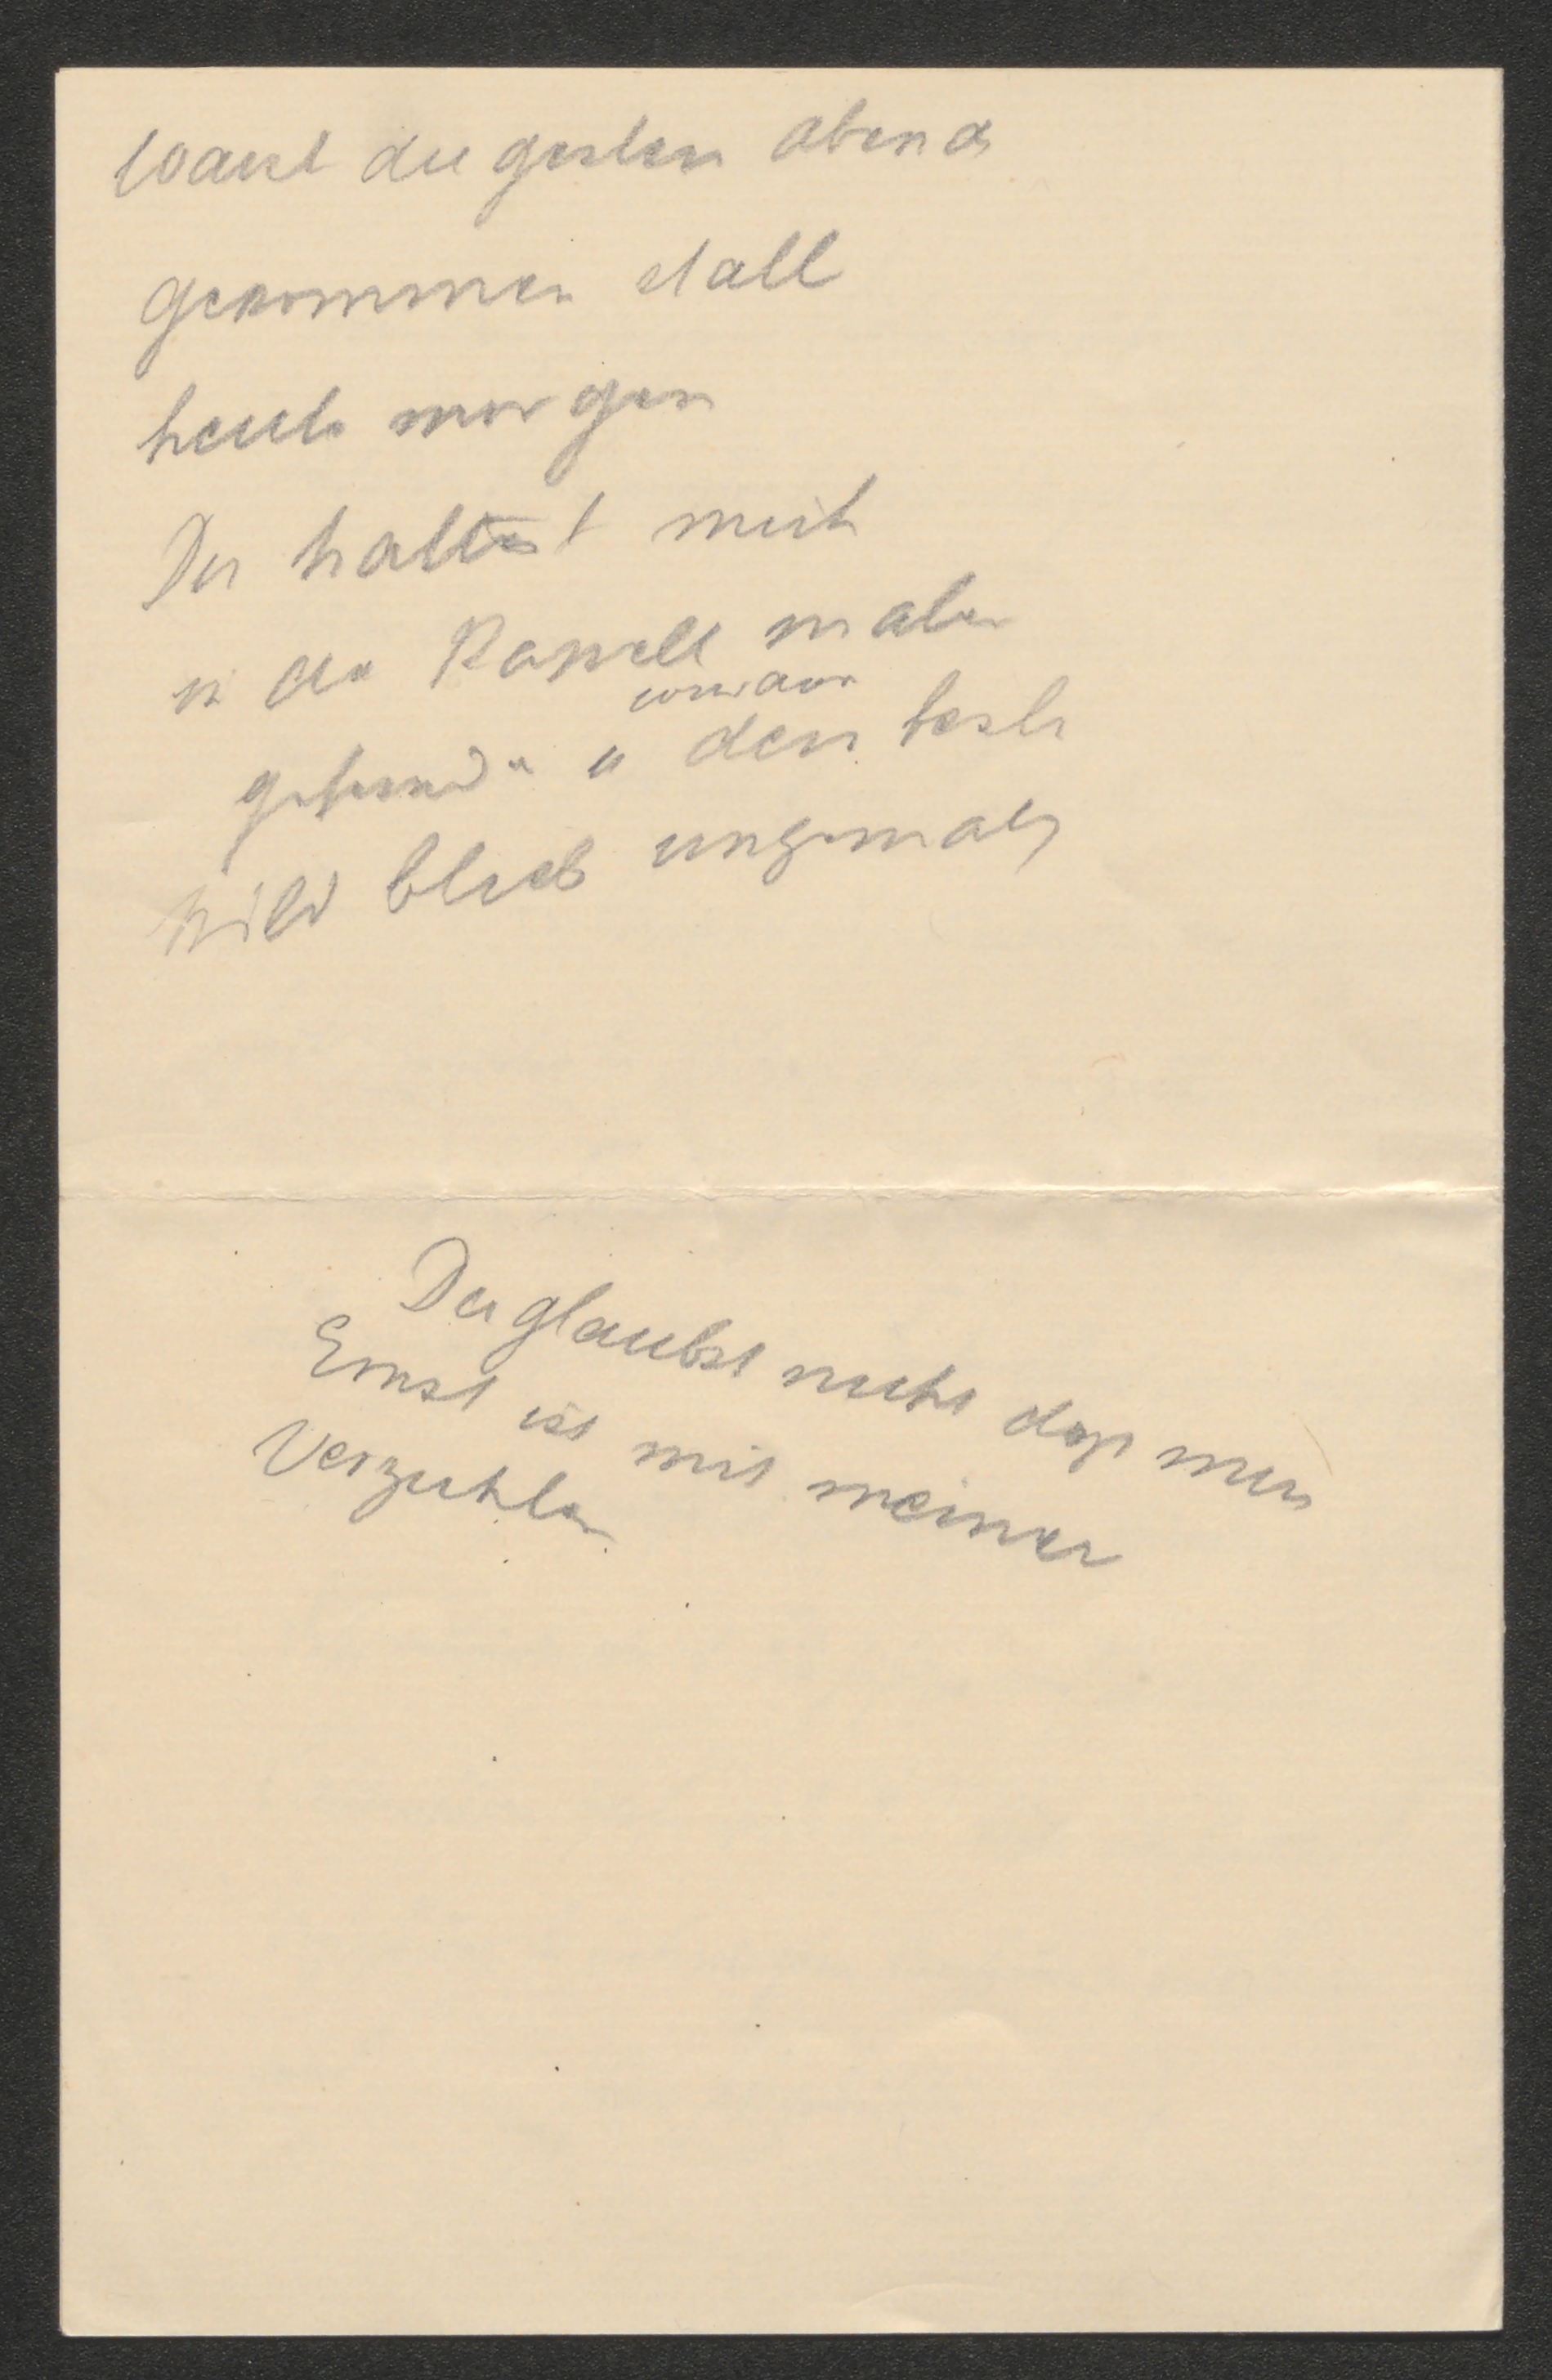 warst du gestern abend
gekommen statt
heute morgen
Du hattest mich
in der Kapelle malen
gefunden u den beste
Bild blieb ungemalt
Du glaubst nicht dass mein
Ernst ist mit meiner
Verzichten